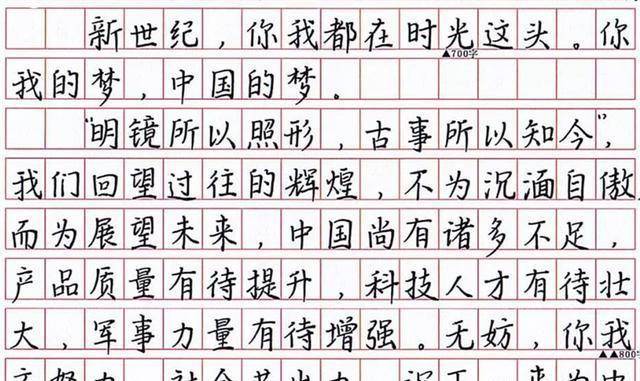 新世纪，你我都在时光这头。你
▲700字
我的梦，中国的梦。
“明镜所以照形，古事所以知今”，
我们回望过往的辉煌，不为沉湎自傲
而为展望未来，中国尚有诸多不足，
产品质量有待提升，科技人才有待壮
大，军事力量有待增强。无妨，你我
▲▲800字
努力，社会共出力